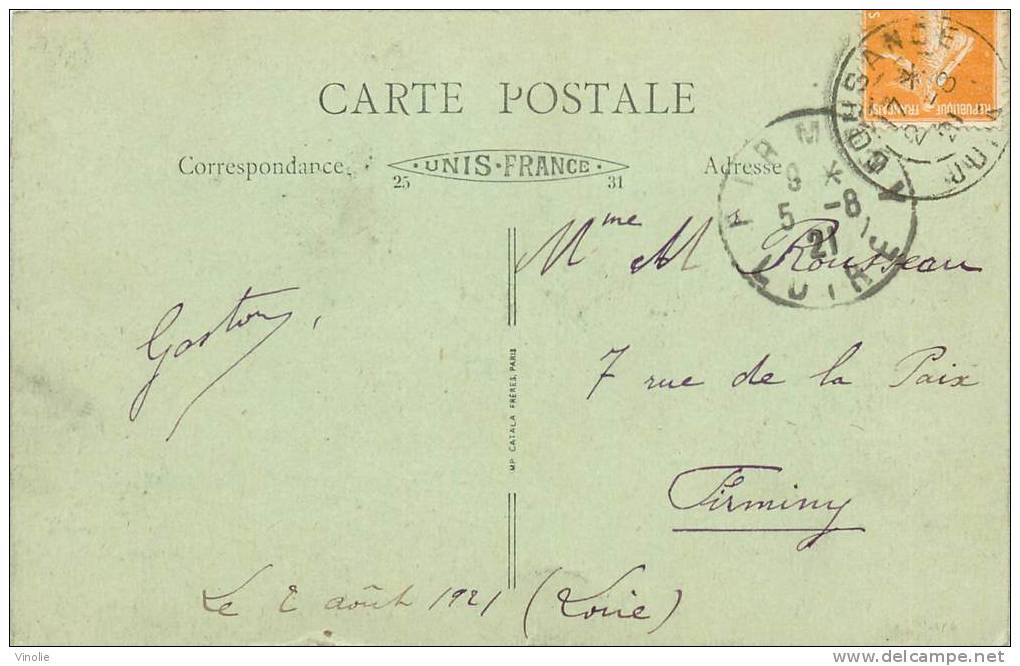 CARTE POSTALE
Correspondance
UNIS-FRANCE
25
31
Adresse
REPUBLIQUE FRANÇAISE
FIRMINY
5 -8
21
LOIRE
Mme M Rousseau
7 rue de la Paix
Firminy
(Loire)
Gaston
Le 2 août 1921
IMP. CATALA FRÈRES, PARIS
Vinolie
delcampe.net